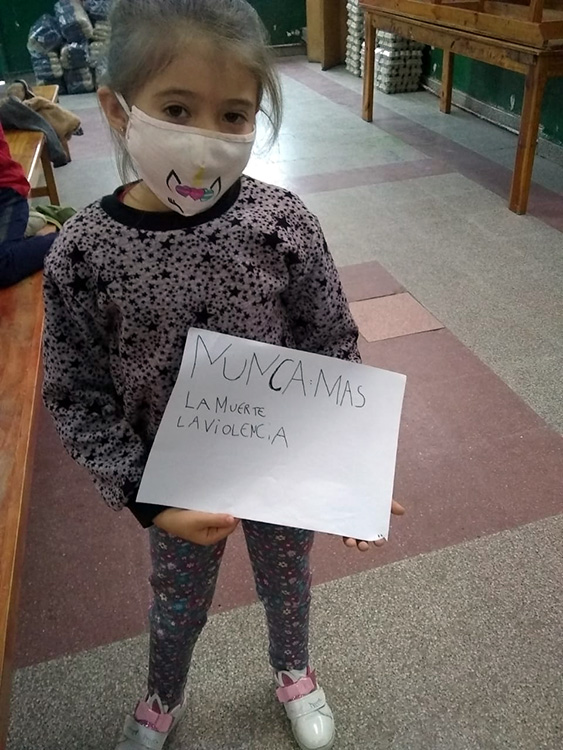 NUNCA:MAS
LA MUERTE
LA VIOLENCIA